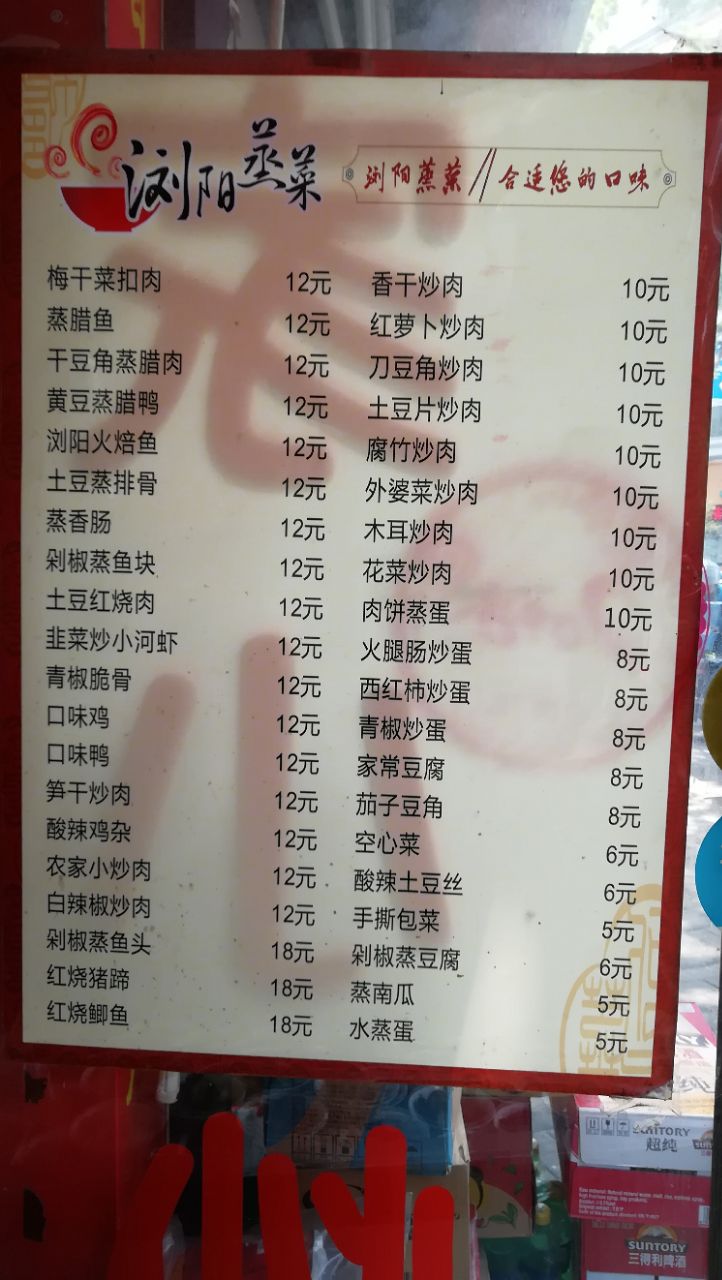 浏阳蒸菜
浏阳蒸菜//合适您的口味
梅干菜扣肉 12元
蒸腊鱼 12元
干豆角蒸腊肉 12元
黄豆蒸腊鸭 12元
浏阳火焙鱼 12元
土豆蒸排骨 12元
蒸香肠 12元
剁椒蒸鱼块 12元
土豆红烧肉 12元
韭菜炒小河虾 12元
青椒脆骨 12元
口味鸡 12元
口味鸭 12元
笋干炒肉 12元
酸辣鸡杂 12元
农家小炒肉 12元
白辣椒炒肉 12元
剁椒蒸鱼头 18元
红烧猪蹄 18元
红烧鲫鱼 18元
香干炒肉 10元
红萝卜炒肉 10元
刀豆角炒肉 10元
土豆片炒肉 10元
腐竹炒肉 10元
外婆菜炒肉 10元
木耳炒肉 10元
花菜炒肉 10元
肉饼蒸蛋 10元
火腿肠炒蛋 8元
西红柿炒蛋 8元
青椒炒蛋 8元
家常豆腐 8元
茄子豆角 8元
空心菜 6元
酸辣土豆丝 6元
手撕包菜 5元
剁椒蒸豆腐 6元
蒸南瓜 5元
水蒸蛋 5元
SUNTORY
超纯
SUNTORY
三得利啤酒